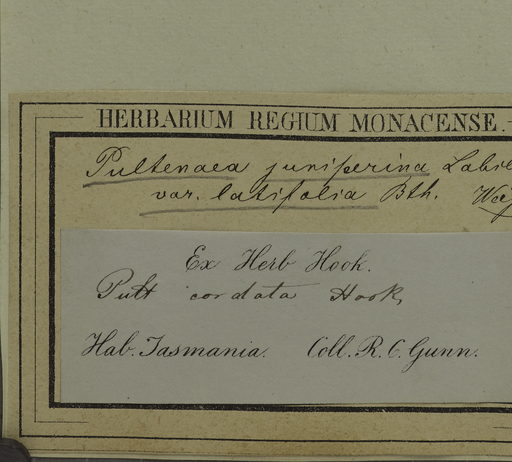 HERBARIUM REGIUM MONACENSE.
Pultenaea juniperina Labil
var. latifolia Bth.
Ex Herb Hook.
Pult cordata Hook,
Hab. Tasmania. Coll. R. C. Gunn.